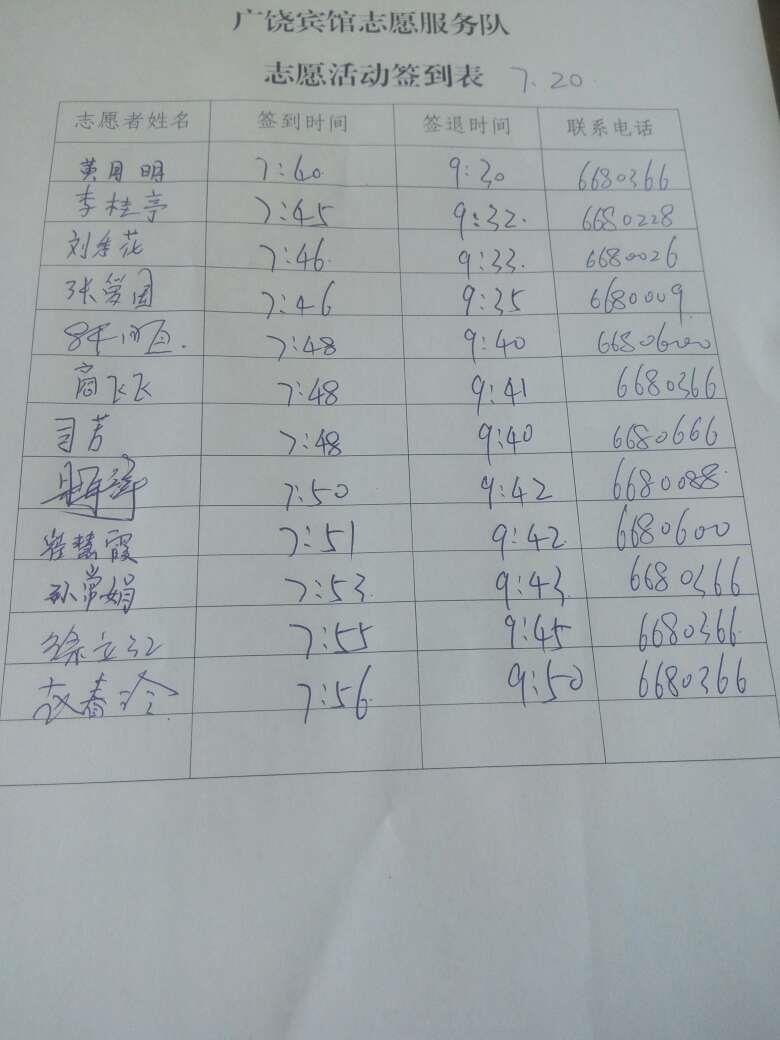 广饶宾馆志愿服务队
志愿活动签到表 7.20.
志愿者姓名 签到时间 签退时间 联系电话
黄月明 7:40 9:30 6680366
李桂亭 7:45 9:32. 6680228
刘冬花 7:46 9:33. 6680026
张爱国 7:46 9:35 6680009
7:48 9:40 6680600
商飞飞 7:48 9:41 6680366
司芳 7:48 9:40 6680666
7:50 9:42 6680088
崔慧霞 7:51 9:42 6680600
孙常娟 7:53 9:43 6680366
徐立红 7:55 9:45 6680366
赵春玲 7:56 9:50 6680366